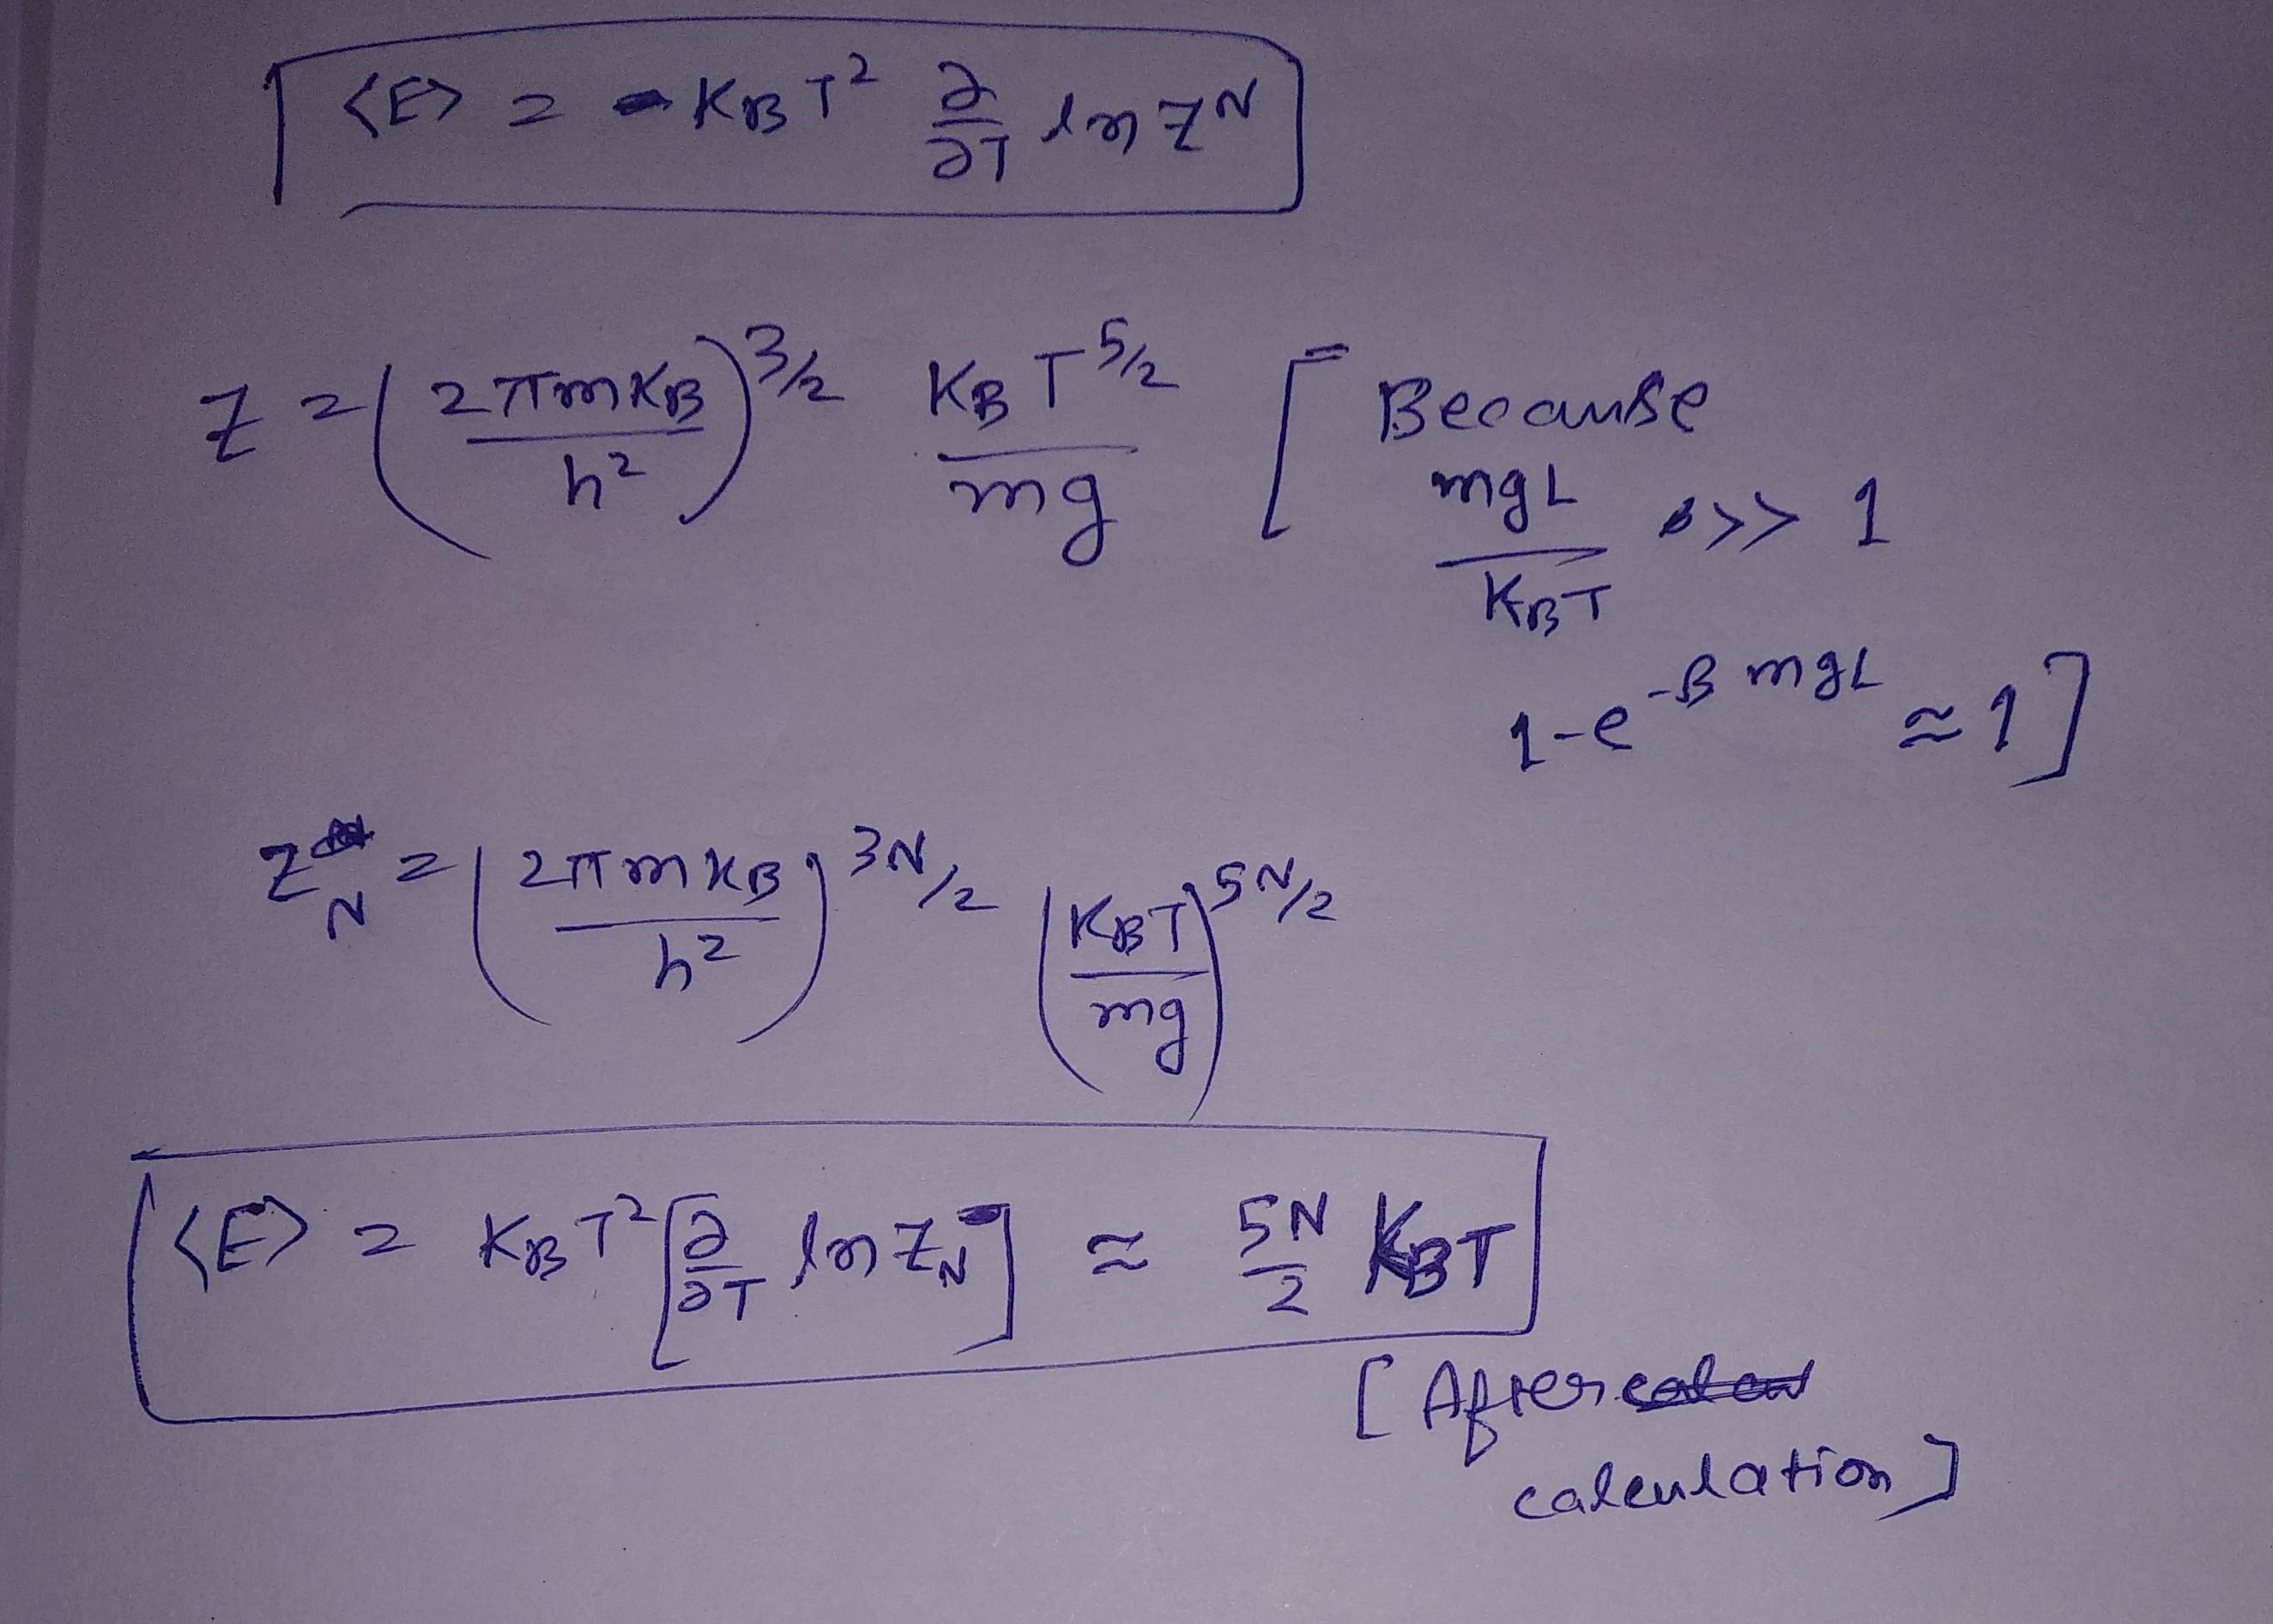 ⟨E⟩ = K_B T² ∂/∂T ln Z^N
Z = (2πmK_B / h²)^{3/2} K_B T^{5/2} / mg [ Because
mgL / K_BT >> 1
1-e^{-β mgL} ≈ 1 ]
Z_N = (2πmK_B / h²)^{3N/2} (K_BT / mg)^{5N/2}
⟨E⟩ = K_B T² [∂/∂T ln Z_N] ≈ 5N/2 K_BT
[ After
calculation ]